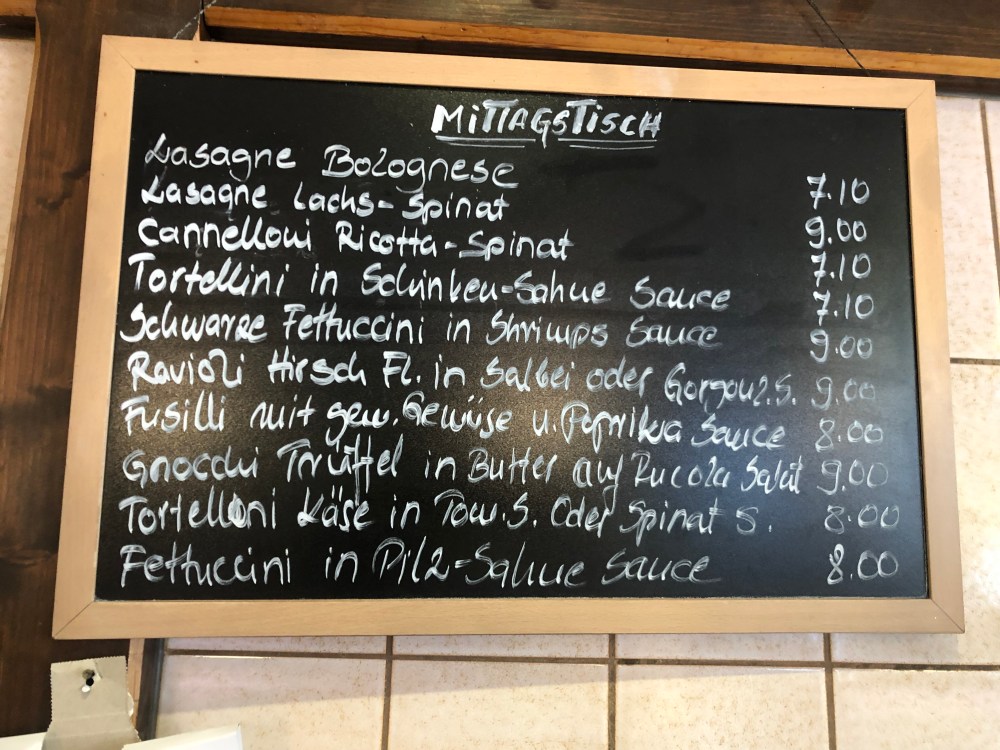 MiTTAGSTiSCH
Lasagne Bolognese 7.10
Lasagne Lachs-Spinat 9.00
Cannelloni Ricotta-Spinat 7.10
Tortellini in Schinken-Sahne Sauce 7.10
Schwarze Fettuccini in Shrimps Sauce 9.00
Ravioli Hirsch Fl. in Salbei oder Gorgonz.S. 9.00
Fusilli mit gem. Gemüse u. Paprika Sauce 8.00
Gnocchi Trüffel in Butter auf Rucola Salat 9.00
Tortelloni Käse in Tom.S. Oder Spinat S. 8.00
Fettuccini in Pilz-Sahne Sauce 8.00